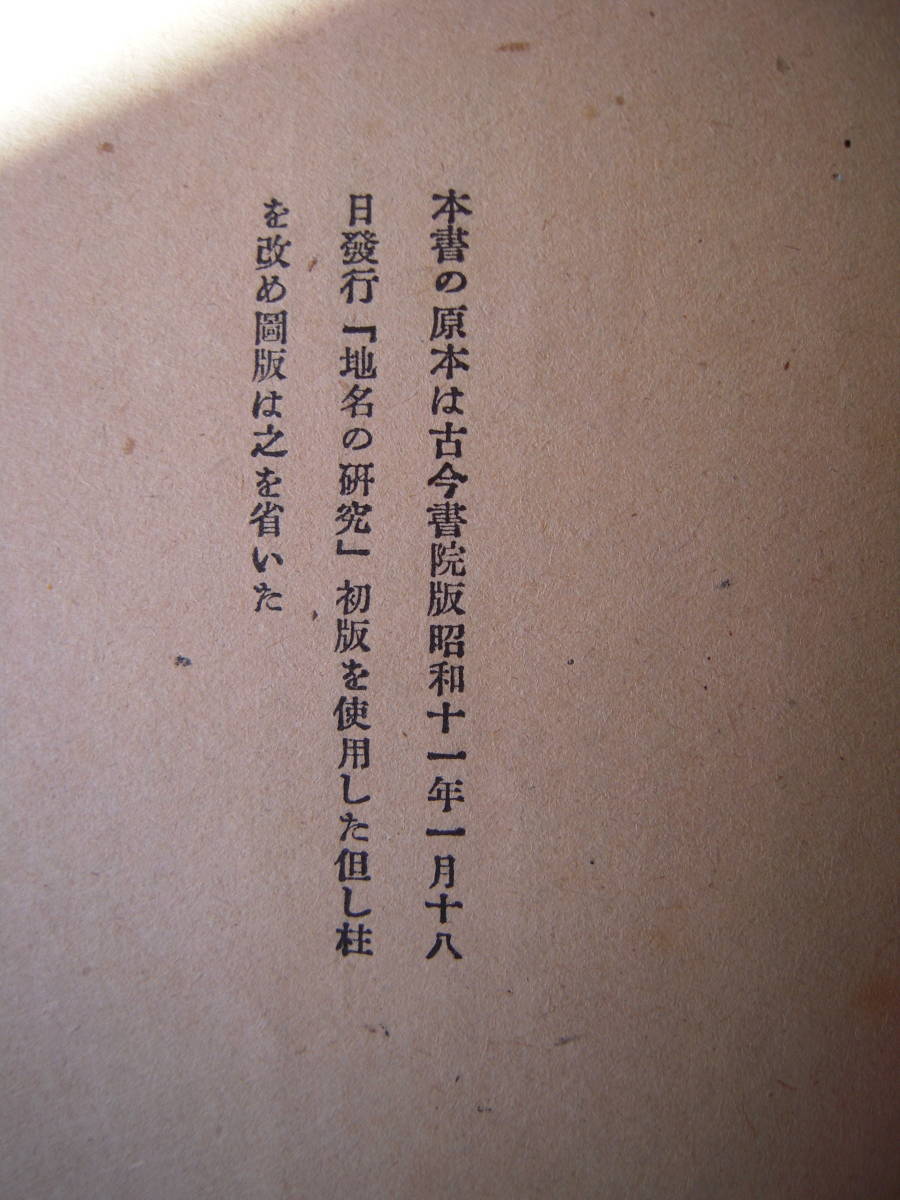 本書の原本は古今書院版昭和十一年一月十八
日發行『地名の研究』初版を使用した但し柱
を改め圖版は之を省いた